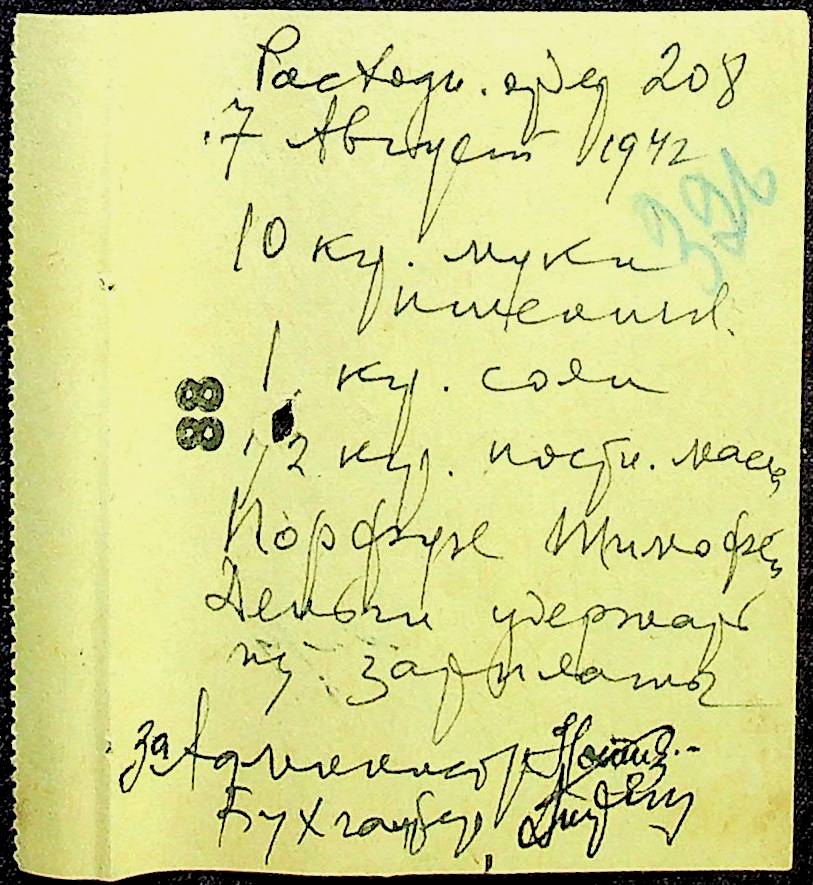 Расходн. орд 208
7 Август 1942
39
10 кг. муки
пшеничн.
1 кг. соли
1/2 кгр. постн. масл
88
Порфире Тимофе
Деньги удержать
из зарплаты
за Администр
Бухгалтер